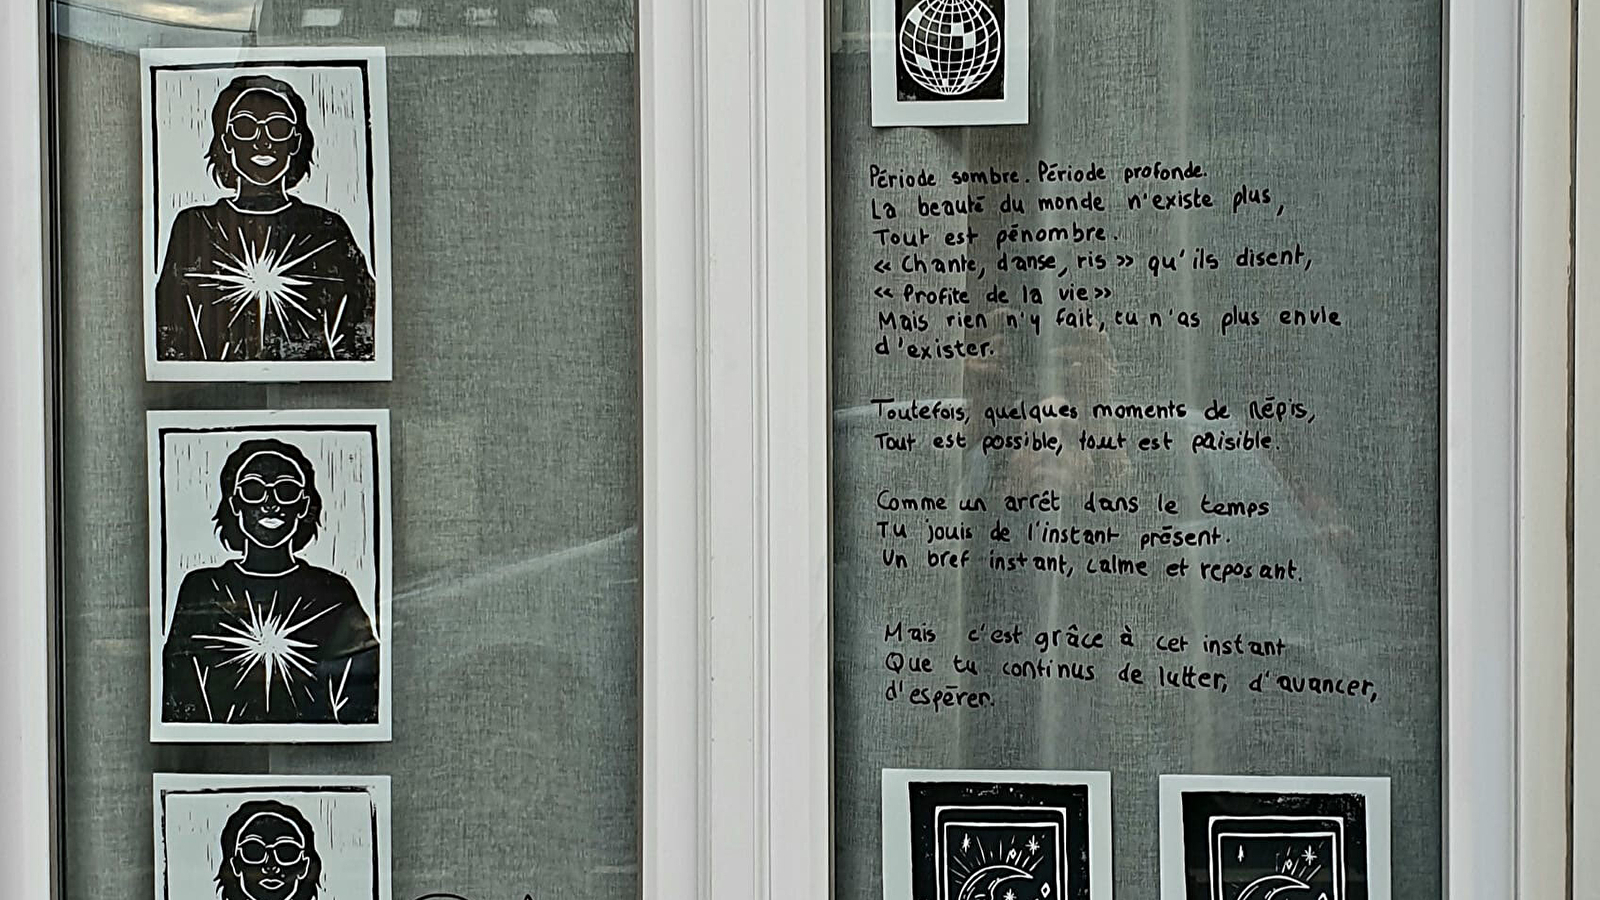 Période sombre. Période profonde.
La beauté du monde n'existe plus,
Tout est pénombre.
« Chante, danse, ris » qu'ils disent,
« Profite de la vie »
Mais rien n'y fait, tu n'as plus envie
d'exister.
Toutefois, quelques moments de Répis,
Tout est possible, tout est paisible.
Comme un arrêt dans le temps
Tu jouis de l'instant présent.
Un bref instant, calme et reposant.
Mais c'est grâce à cet instant
Que tu continus de lutter, d'avancer,
d'espérer.